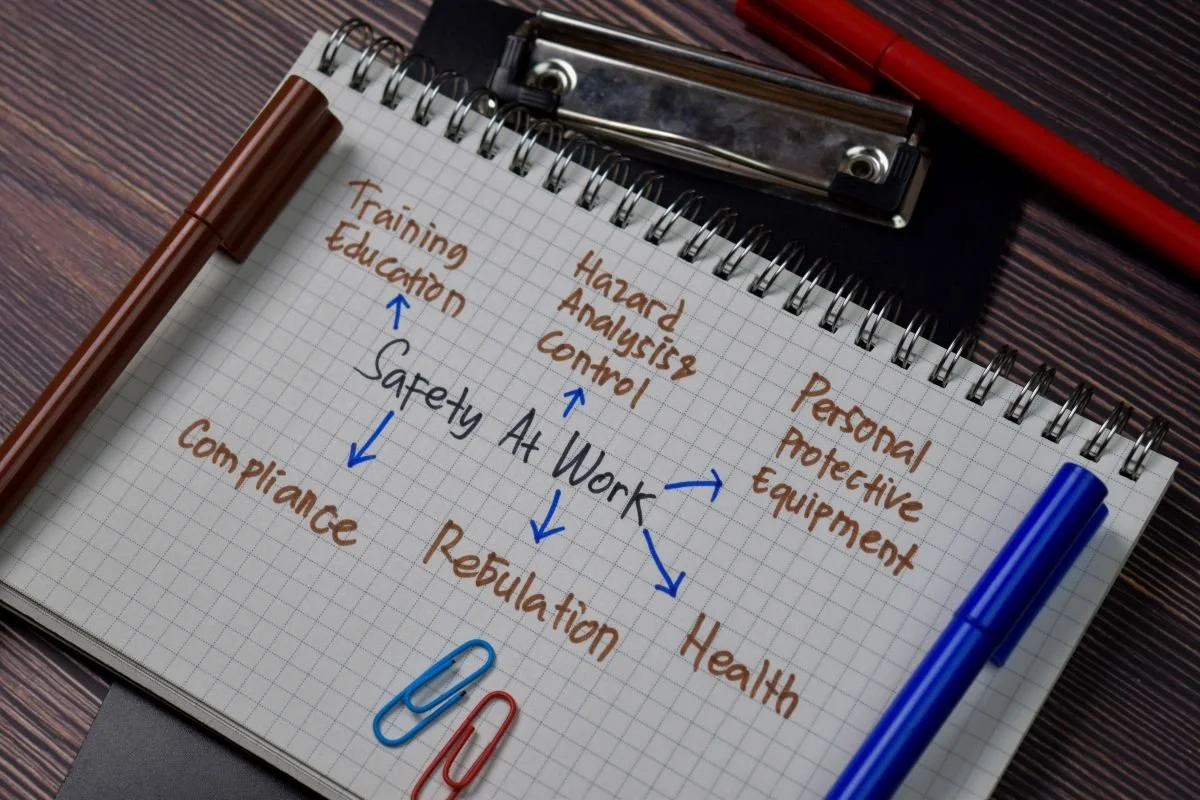 Training
Education
Hazard
Analysis &
Control
Safety At Work
Personal
Protective
Equipment
Compliance
Regulation
Health